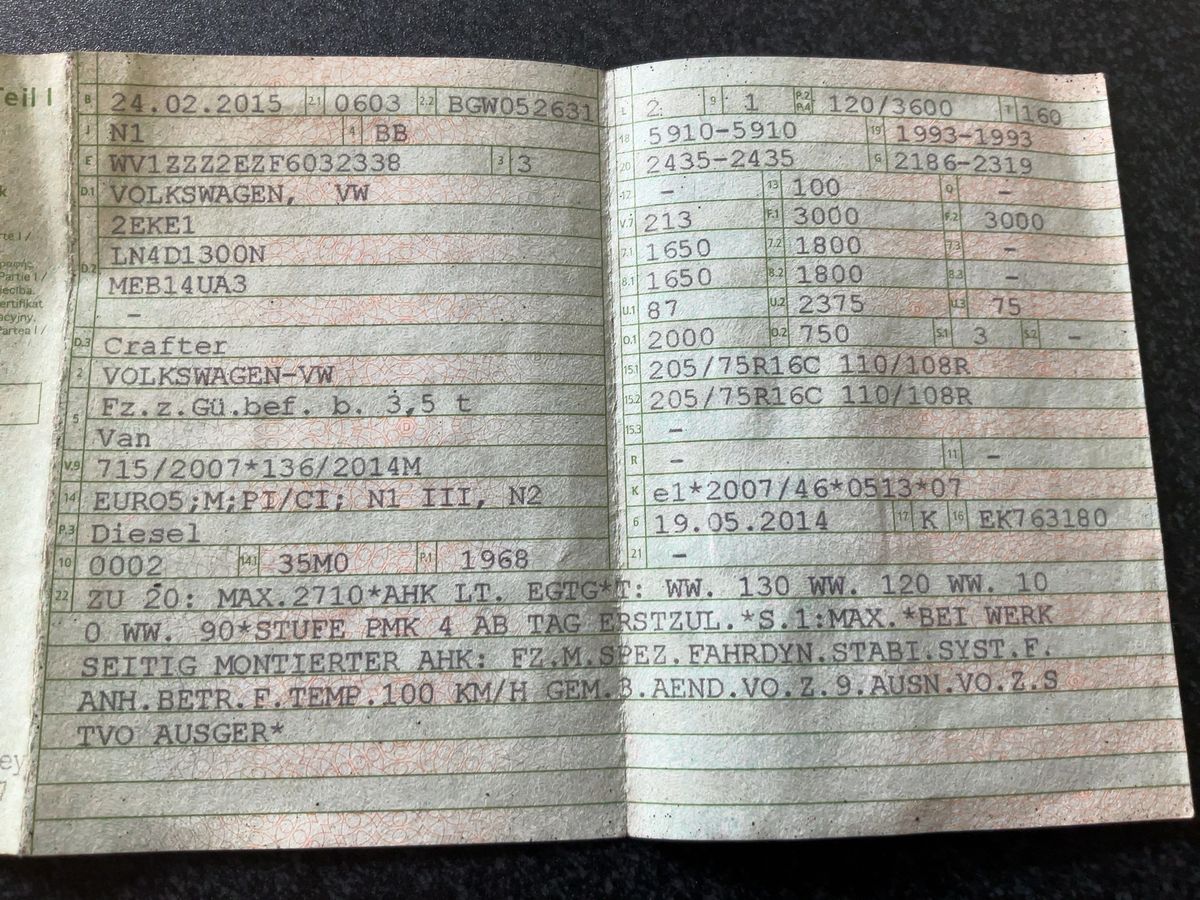 Teil I
B 24.02.2015 2.1 0603 2.2 BGW052631
J N1 4 BB
E WV1ZZZ2EZF6032338 3 3
D.1 VOLKSWAGEN, VW
2EKE1
D.2 LN4D1300N
MEB14UA3
–
D.3 Crafter
2 VOLKSWAGEN-VW
5 Fz.z.Gü.bef. b. 3,5 t
Van
V.9 715/2007*136/2014M
14 EURO5;M;PI/CI; N1 III, N2
P.3 Diesel
10 0002 14.1 35M0 P.1 1968
L 2 9 1 P.2 P.4 120/3600 T 160
18 5910-5910 19 1993-1993
20 2435-2435 G 2186-2319
12 – 13 100 Q –
V.7 213 F.1 3000 F.2 3000
7.1 1650 7.2 1800 7.3 –
8.1 1650 8.2 1800 8.3 –
U.1 87 U.2 2375 U.3 75
O.1 2000 O.2 750 S.1 3 S.2 –
15.1 205/75R16C 110/108R
15.2 205/75R16C 110/108R
15.3 –
R – 11 –
K e1*2007/46*0513*07
6 19.05.2014 17 K 16 EK763180
21 –
22 ZU 20: MAX.2710*AHK LT. EGTG*T: WW. 130 WW. 120 WW. 10
0 WW. 90*STUFE PMK 4 AB TAG ERSTZUL.*S.1:MAX.*BEI WERK
SEITIG MONTIERTER AHK: FZ.M.SPEZ.FAHRDYN.STABI.SYST.F.
ANH.BETR.F.TEMP.100 KM/H GEM.3.AEND.VO.Z.9.AUSN.VO.Z.S
TVO AUSGER*